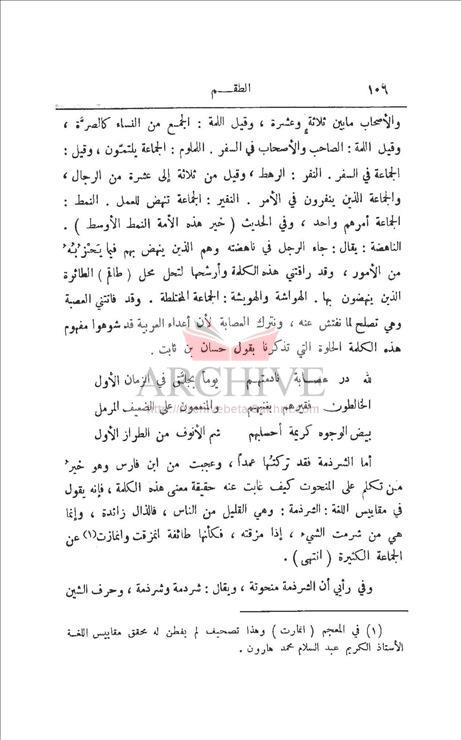 ١٥٩ الطقـــم
والأصحاب مابين ثلاثة وعشرة ، وقيل اللمة : الجمع من النساء كالصرَّة ،
وقيل اللمة : الصاحب والأصحاب في السفر . اللملوم : الجماعة يلتمّون ، وقيل :
الجماعة في السفر . النفر : الرهط ، وقيل من ثلاثة إلى عشرة من الرجال ،
والجماعة الذين ينفرون في الأمر . النفير : الجماعة تنهض للعمل . النمط :
الجماعة أمرهم واحد ، وفي الحديث ( خير هذه الأمة النمط الأوسط ) .
الناهضة : يقال : جاء الرجل في ناهضته وهم الذين ينهض بهم فيما يَحْزُبُهُ
من الأمور ، وقد راقتني هذه الكلمة وأرشحها لتحل محل ( طاقم ) الطائرة
الذين ينهضون بها . الهواشة والهوبشة : الجماعة المختلطة . وقد فاتتني العصبة
وهي تصلح لما نفتش عنه ، ونترك العصابة لأن أعداء العربية قد شوهوا مفهوم
هذه الكلمة الحلوة التي تذكرنا بقول حسان بن ثابت .
لله در عصـابة نادمتهـم يوماً بجلّق في الزمان الأول
الخالطون فقيرهم بغنيهم والمنعمون على الضعيف المرمل
بيض الوجوه كريمة أحسابهم شم الأنوف من الطراز الأول
ARCHIVE
أما الشرذمة فقد تركتُها عمداً ، وعجبت من ابن فارس وهو خيرُ
مَن تكلم على المنحوت كيف غابت عنه حقيقة معنى هذه الكلمة ، فإنه يقول
في مقاييس اللغة : الشرذمة : وهي القليل من الناس ، فالذال زائدة ، وإنما
هي من شرمت الشيء ، إذا مزقته ، فكأنها طائفة انمزقت وانمازت(١) عن
الجماعة الكثيرة ( انتهى ) .
وفي رأيي أن الشرذمة منحوتة ، ويقال : شردمة وشرذمة ، وحرف الشين
(١) في المعجم ( انمارت ) وهذا تصحيف لم يفطن له محقق مقاييس اللغـة
الأستاذ الكريم عبد السلام محمد هارون .